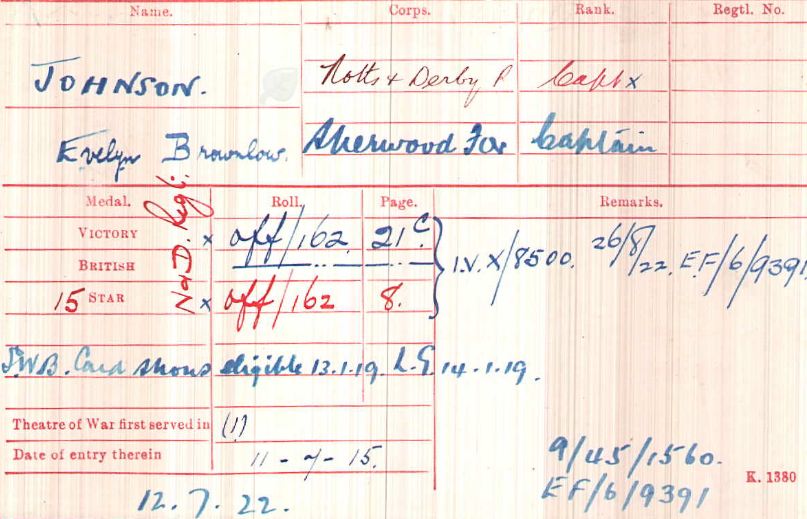 Name. Corps. Rank. Regtl. No.
JOHNSON. Notts & Derby R Capt x
Evelyn Brownlow. Sherwood For Captain
Medal. Roll. Page. Remarks.
N&D. Regt.
VICTORY x off/162 21C. I.V. X/8500. 26/8/22. E.F/6/9391
BRITISH
15 STAR x off/162 8.
S.W.B. Card shows eligible 13.1.19. L.G. 14.1.19.
Theatre of War first served in (1)
Date of entry therein 11-7-15.
9/45/1560.
K. 1380
EF/6/9391
12.7.22.